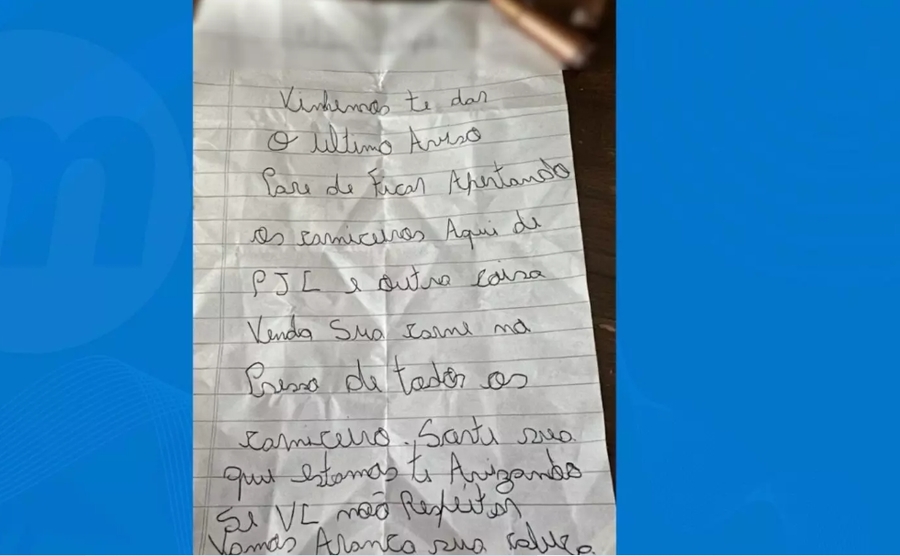 Vinhemos te dar
O ultimo Aviso
Pare de Ficar Apertando
os carniceiros Aqui de
PJC e outra coisa
Venda Sua carne na
Presso de todos os
carniceiro. Sorte sua
que estamos te Avizando
Se VC não Respeitar
Vamos Aranca sua cabeça
m